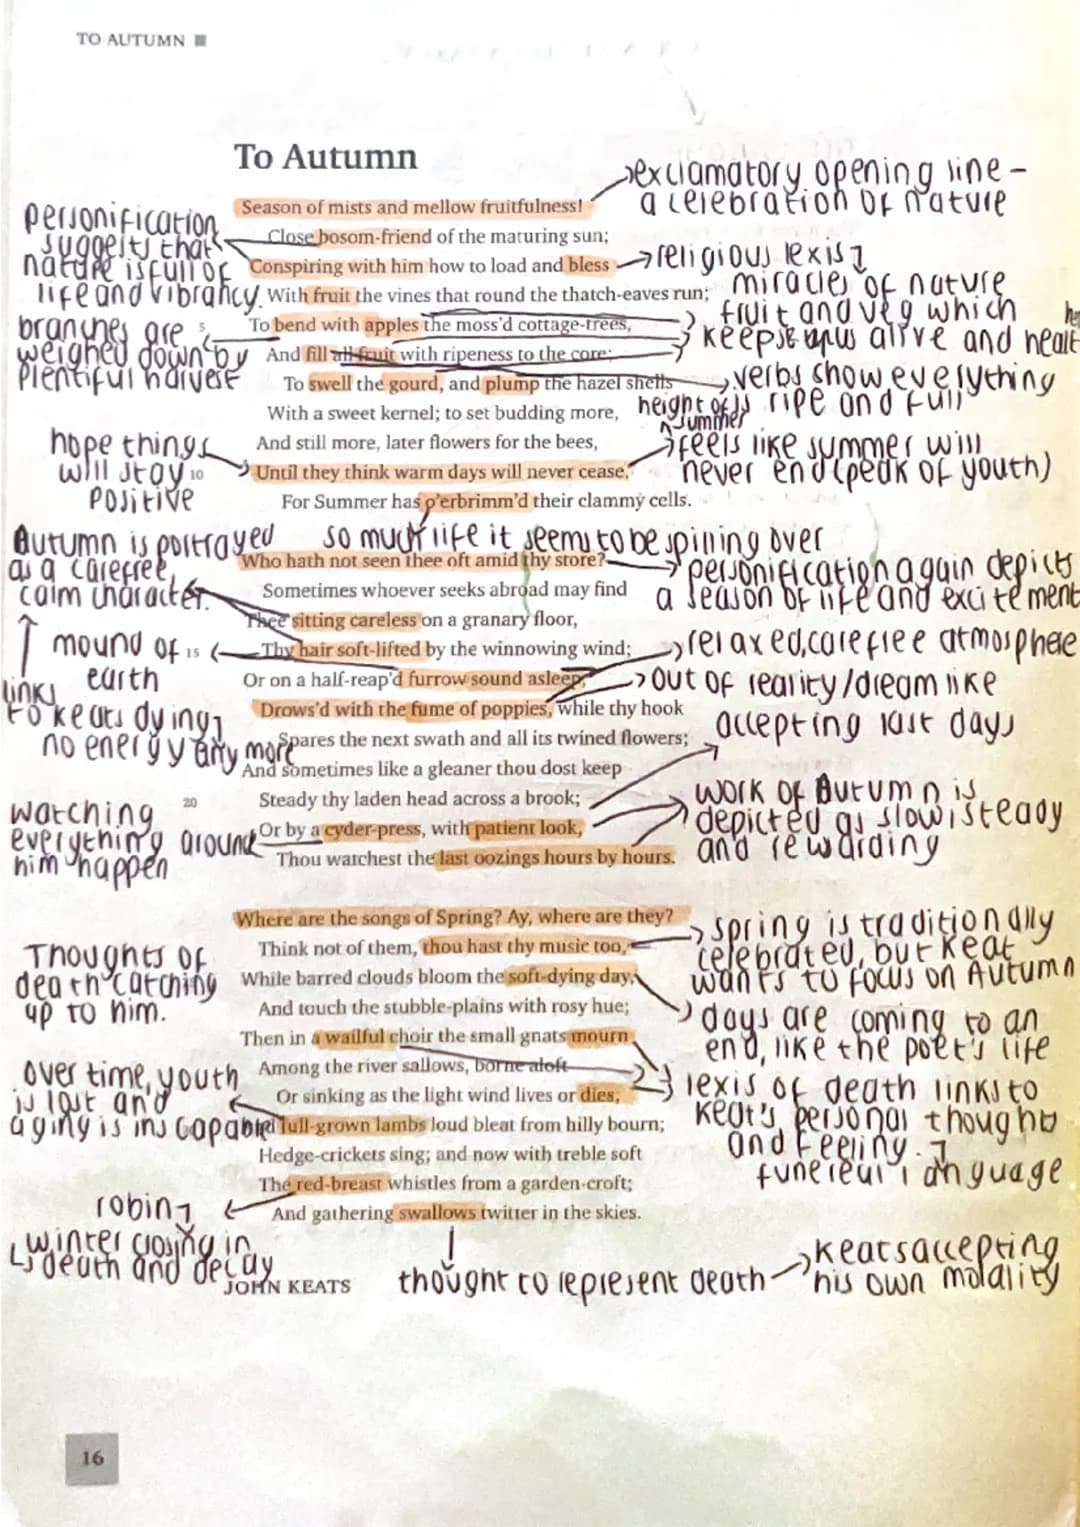 TO AUTUMN
To Autumn
exclamatory opening line -
a celebration of nature
Season of mists and mellow fruitfulness!
Close bosom-friend of the maturing sun;
Conspiring with him how to load and bless
With fruit the vines that round the thatch-eaves run;
To bend with apples the moss'd cottage-trees,
And fill all fruit with ripeness to the core;
To swell the gourd, and plump the hazel shells
With a sweet kernel; to set budding more,
And still more, later flowers for the bees,
Until they think warm days will never cease,
For Summer has o'erbrimm'd their clammy cells.
personification
suggests that
nature is full of
life and vibrancy.
branches are
weighed down by
plentiful harvest
5
religious lexis
miracles of nature
fruit and veg which
keeps us alive and
verbs show everything
is ripe and full
height of
summer
feels like summer will
never end (peak of youth)
hope things
will stay
positive
10
so much life it seems to be spilling over
Who hath not seen thee oft amid thy store?
Sometimes whoever seeks abroad may find
Thee sitting careless on a granary floor,
Thy hair soft-lifted by the winnowing wind;
Or on a half-reap'd furrow sound asleep,
Drows'd with the fume of poppies, while thy hook
Spares the next swath and all its twined flowers;
And sometimes like a gleaner thou dost keep
Steady thy laden head across a brook;
Or by a cyder-press, with patient look,
Thou watchest the last oozings hours by hours.
Autumn is portrayed
as a carefree,
calm character.
mound of
earth
15
links
to keats dying
no energy any more
watching
everything around
him happen
20
personification again depicts
a season of life and excitement
relaxed, carefree atmosphere
out of reality/dream like
accepting last days
work of Autumn is
depicted as slow, steady
and rewarding
Where are the songs of Spring? Ay, where are they?
Think not of them, thou hast thy music too,
While barred clouds bloom the soft-dying day,
And touch the stubble-plains with rosy hue;
Then in a wailful choir the small gnats mourn
Among the river sallows, borne aloft
Or sinking as the light wind lives or dies;
And full-grown lambs loud bleat from hilly bourn;
Hedge-crickets sing; and now with treble soft
The red-breast whistles from a garden-croft;
And gathering swallows twitter in the skies.
Thoughts of
death catching
up to him.
over time, youth
is lost and
aging is inscapable
robin
winter closing in
death and decay
spring is traditionally
celebrated, but Keat
wants to focus on Autumn
days are coming to an
end, like the poet's life
lexis of death links to
Keat's personal thoughts
and feeling.
funereal language
JOHN KEATS
thought to represent death
Keats accepting
his own molality
16